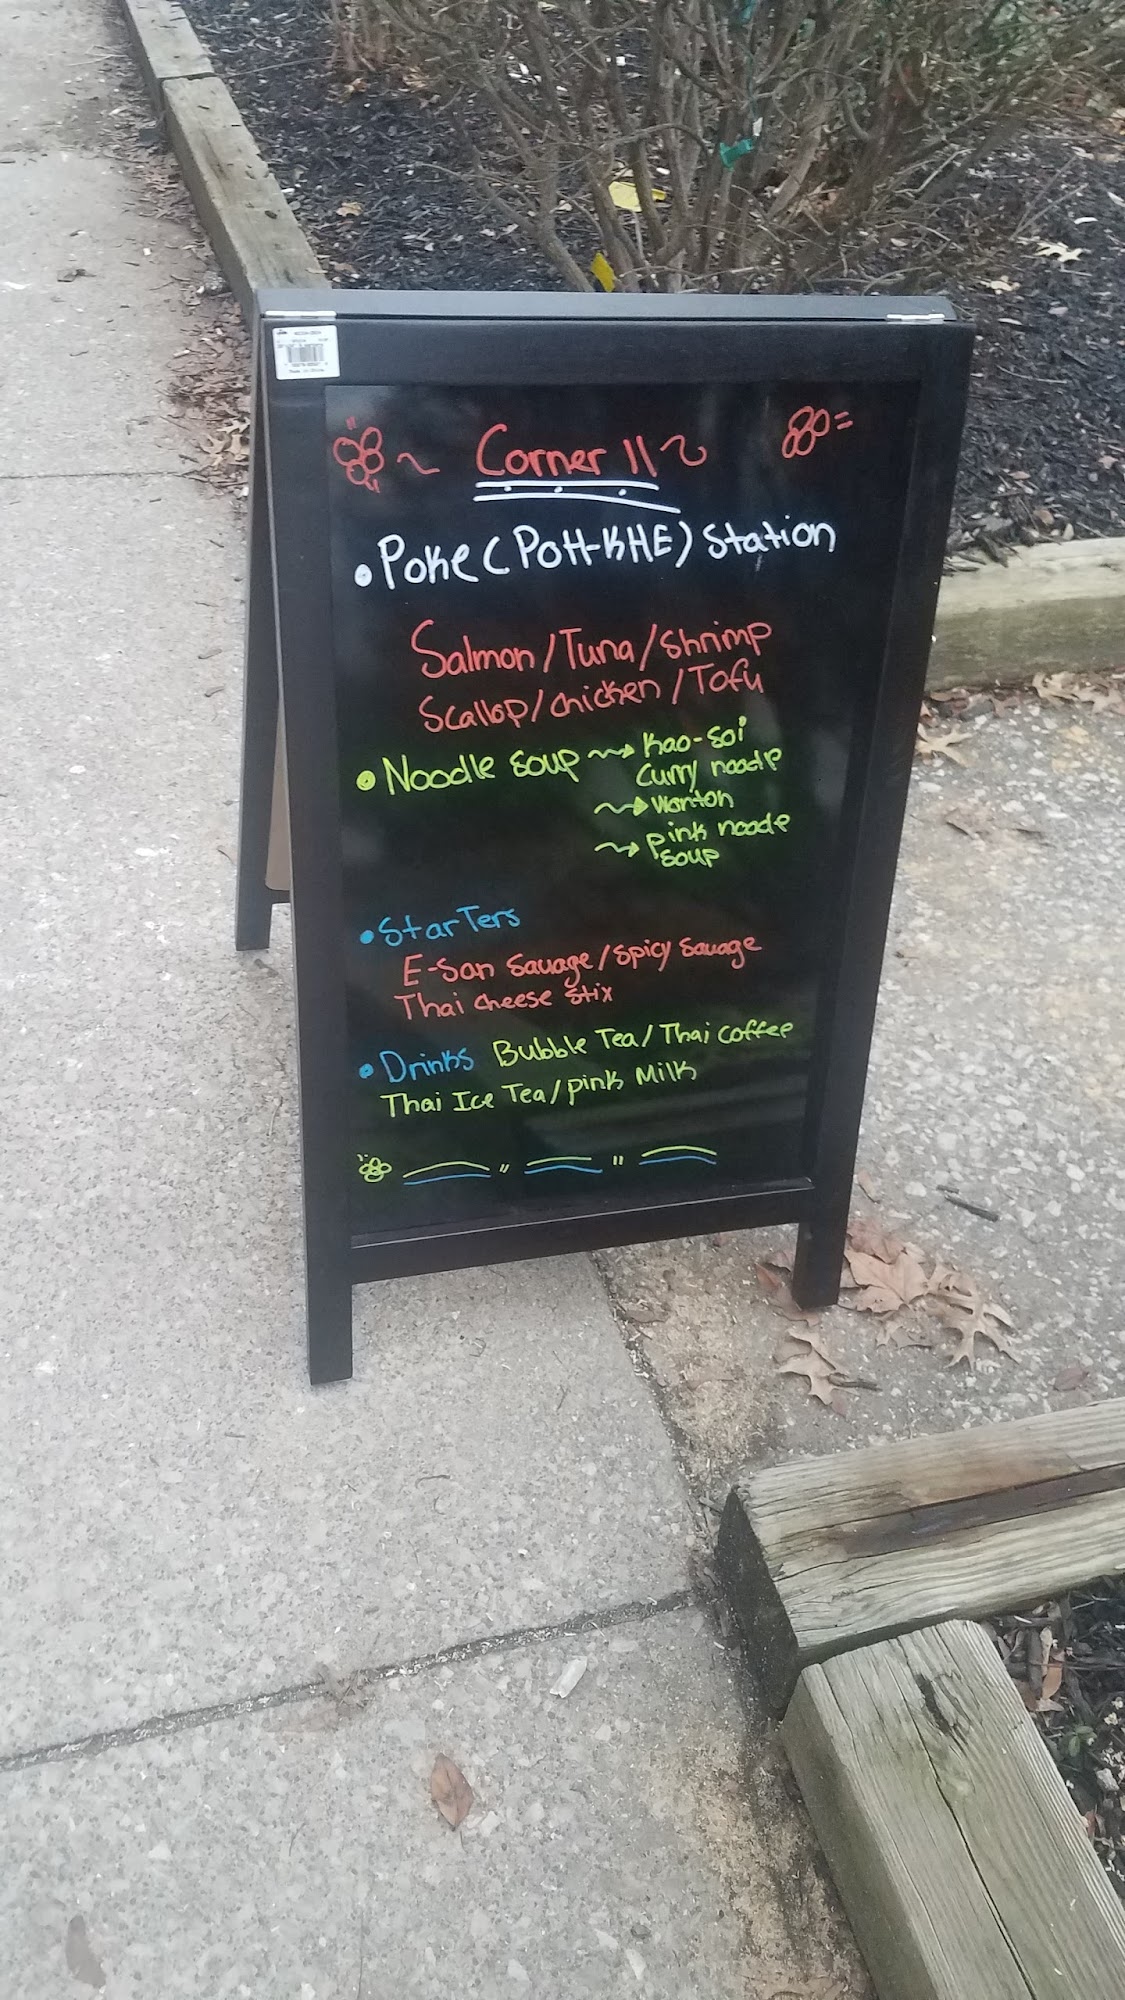 ~ Corner 11 ~
• Poke (POH-KHE) Station
Salmon/Tuna/Shrimp
Scallop/chicken/Tofu
• Noodle soup ~> Kao-Soi
Curry noodle
~> Wonton
~> pink noodle
soup
• StarTers
E-san Sauage/Spicy Sauage
Thai cheese Stix
• Drinks Bubble Tea/Thai coffee
Thai Ice Tea/pink Milk